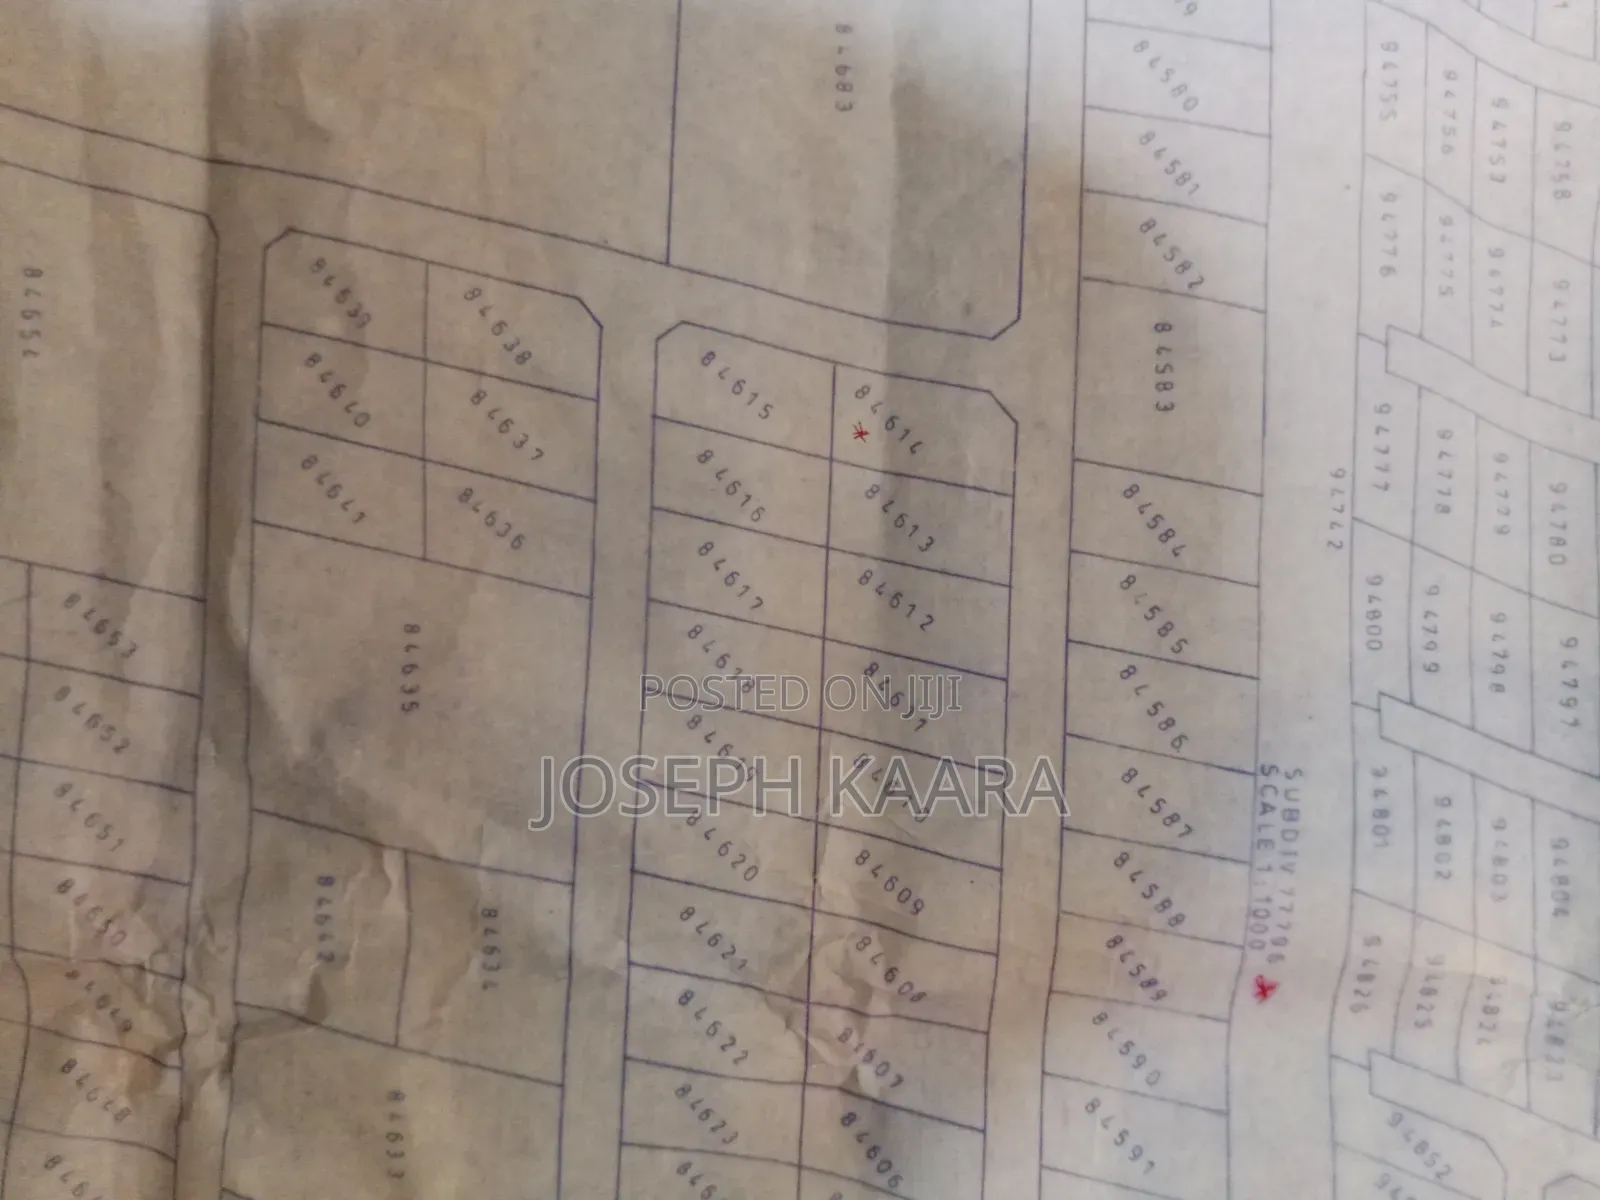 84683
84580
84581
84582
84583
84584
84585
84586
84587
84588
84589
84590
84591
94755
94756
94753
94758
94776
94775
94774
94773
94777
94778
94779
94780
94742
94800
94799
94798
94797
94801
94802
94803
94804
94826
94825
94824
94823
94852
SUBDIV 77796
SCALE 1:1000
84654
84639
84638
84640
84637
84641
84636
84635
84615
84614
84616
84613
84617
84612
84618
84611
84619
84610
84620
84609
84621
84608
84622
84607
84623
84606
84653
84652
84651
84650
84649
84648
84642
84634
84633
POSTED ON JIJI
JOSEPH KAARA